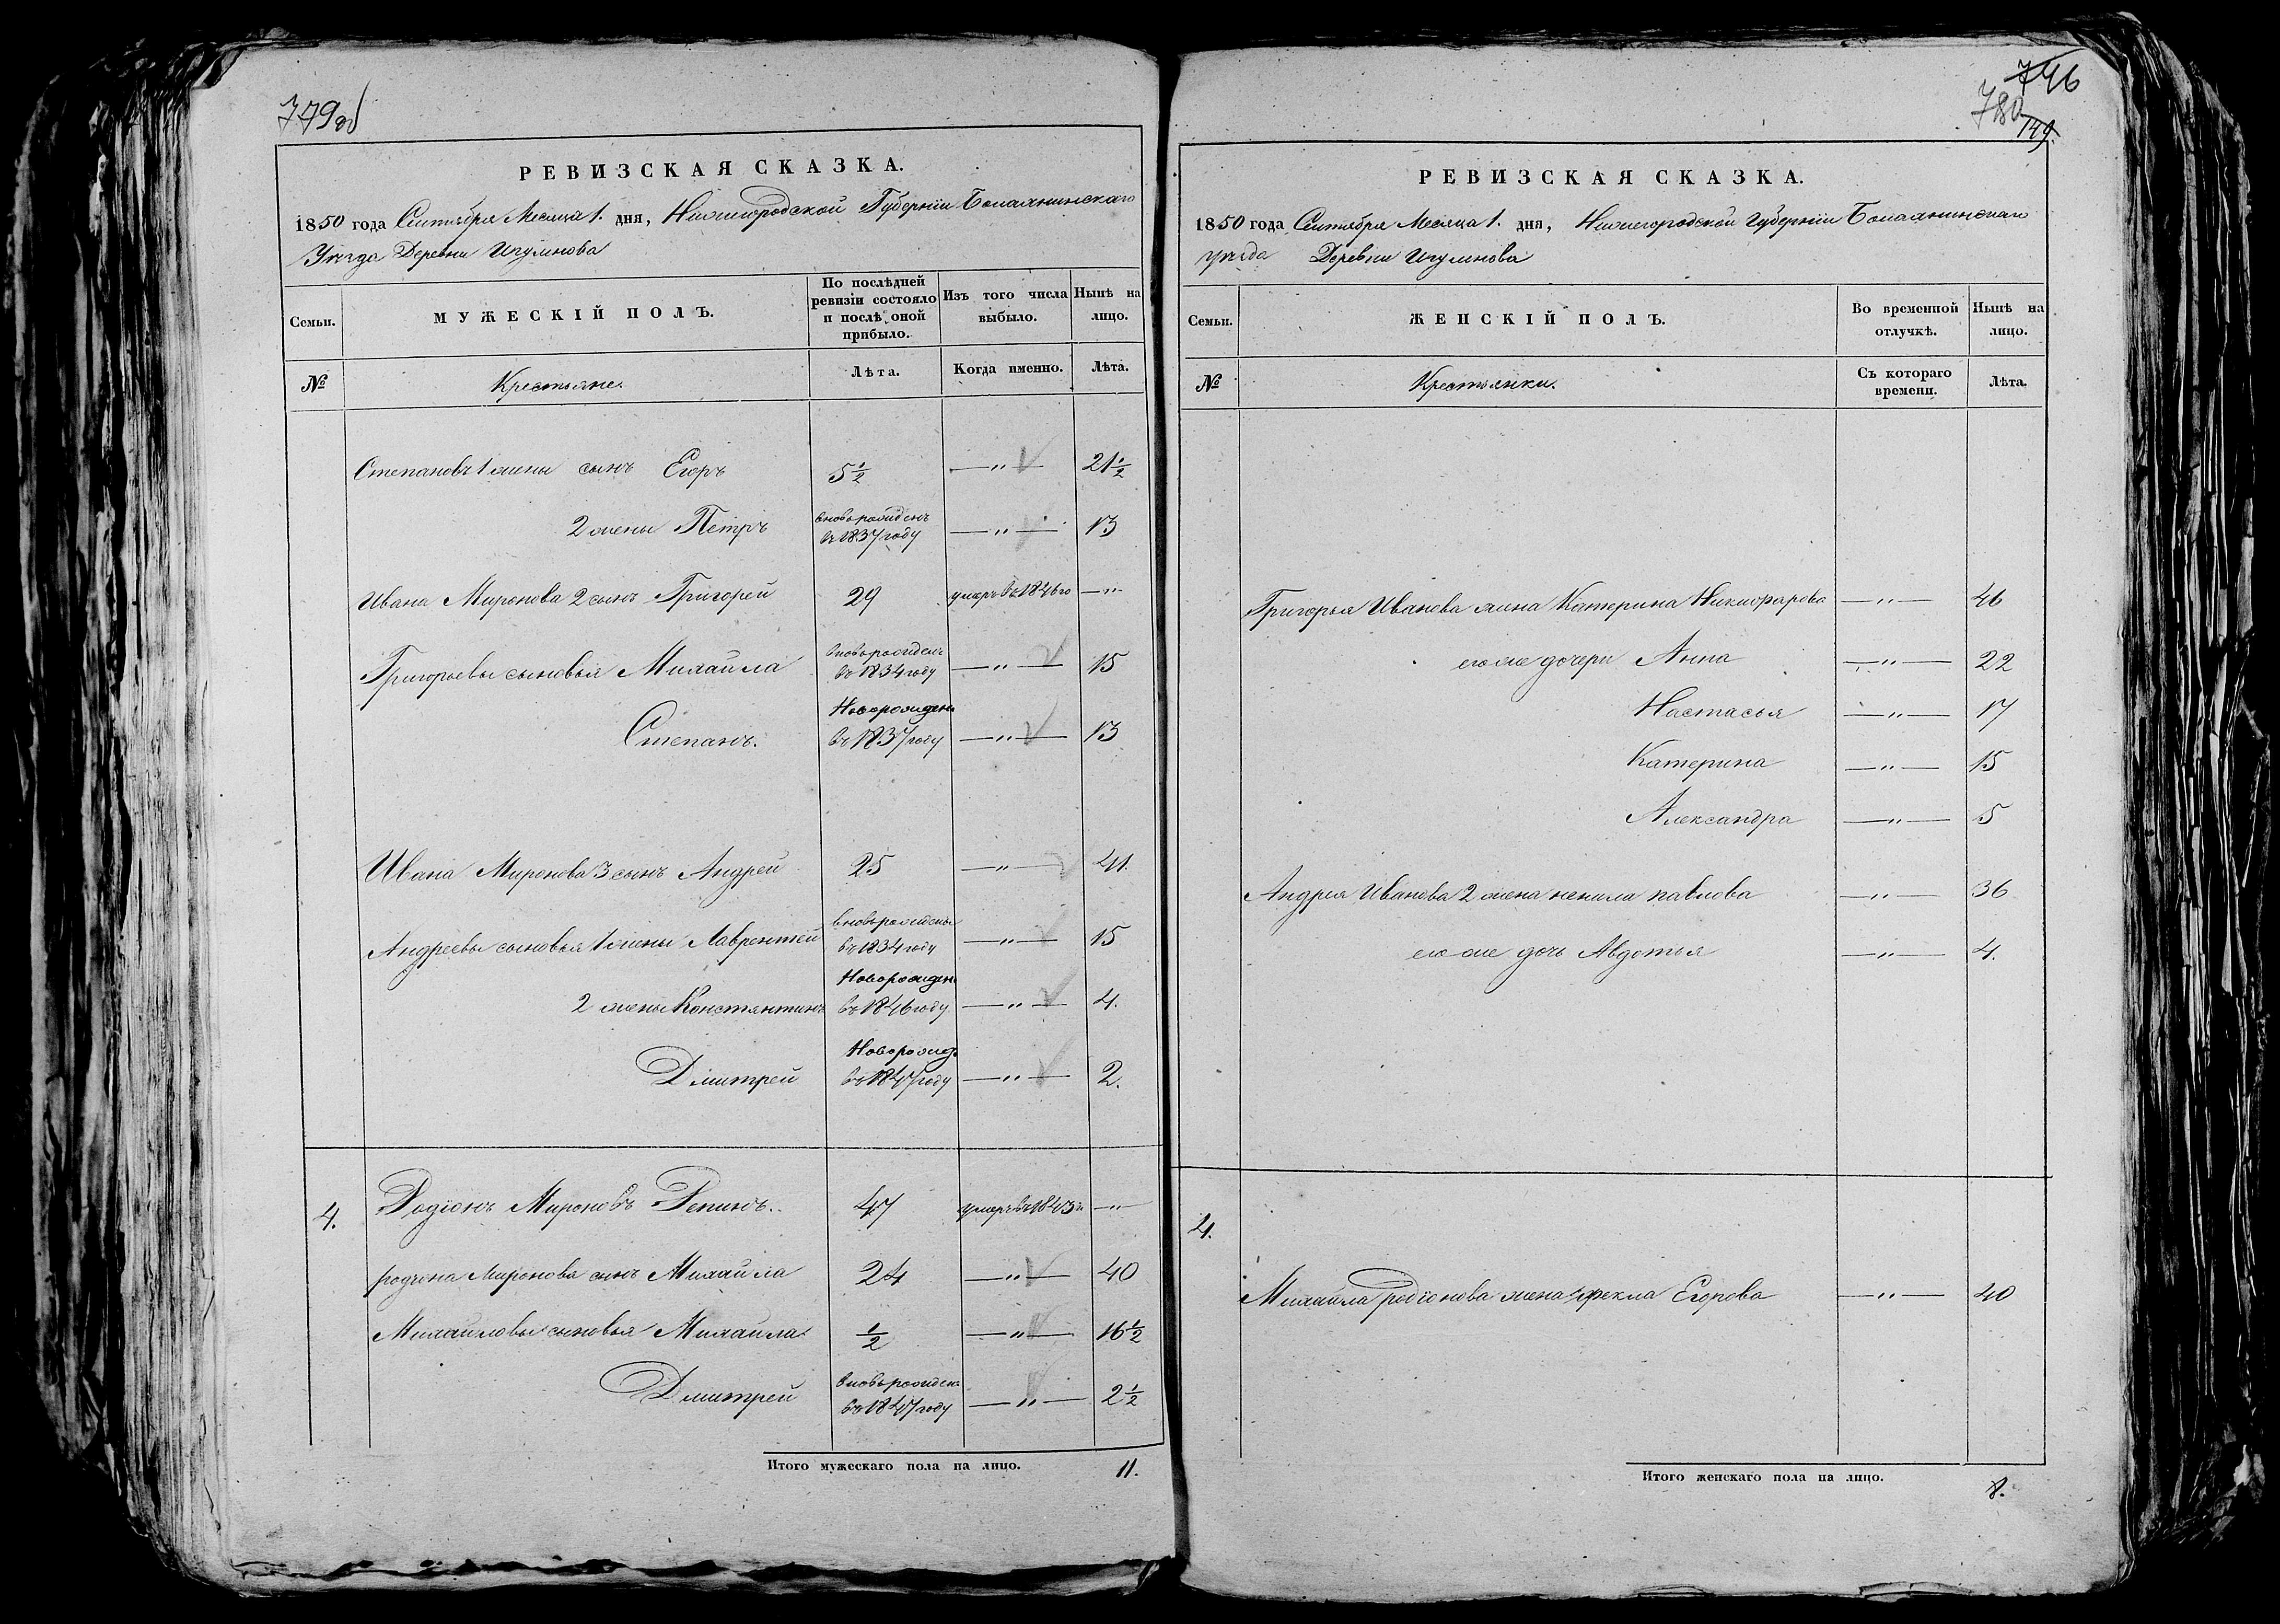 779об
РЕВИЗСКАЯ СКАЗКА.
1850 года Сентября Месяца 1. дня, Нижегородской Губерніи Балахнинскаго
Уѣзда Деревни Игумнова
Семьи.
МУЖЕСКІЙ ПОЛЪ.
По послѣдней ревизіи состояло и послѣ оной прибыло.
Изъ того числа выбыло.
Нынѣ на лицо.
№
Крестьяне.
Лѣта.
Когда именно.
Лѣта.
Степановъ 1 жены сынъ Егоръ 5½ —"— 21½
2 жены Петръ вновь рожденъ въ 1837 году —"— 13
Ивана Миронова 2 сынъ Григорей 29 умеръ въ 1846го —"
Григорьевы сыновья Михайла вновь рожденъ въ 1834 году —"— 15
Степанъ. Новорожден въ 1837 году —"— 13
Ивана Миронова 3 сынъ Андрей 25 —"— 41.
Андреевы сыновья 1 жены Лаврентей вновь рожденъ въ 1834 году —"— 15
2 жены Константинъ Новорожден въ 1846 году —"— 4.
Дмитрей Новорожд. въ 1847 году —"— 2.
4. Родіонъ Мироновъ Репинъ. 47 умеръ въ 1843г. —"—
родіона Миронова сынъ Михайла 24 —"— 40
Михайловы сыновья Михайла ½ —"— 16½
Дмитрей вновь рожден. въ 1847 году —"— 2½
Итого мужескаго пола на лицо. 11.
746
780
149.
РЕВИЗСКАЯ СКАЗКА.
1850 года Сентября Месяца 1. дня, Нижегородской Губерніи Балахнинскаго
уѣзда Деревни Игумнова
Семьи.
ЖЕНСКІЙ ПОЛЪ.
Во временной отлучкѣ.
Нынѣ на лицо.
№
Крестьянки.
Съ котораго времени.
Лѣта.
Григорья Иванова жена Катерина Никифарова —"— 46
его же дочери Анна —"— 22
Настасья —"— 17
Катерина —"— 15
Александра —"— 5
Андрея Иванова 2 жена ненила павлова —"— 36
его же дочь Авдотья —"— 4.
4.
Михайла родіонова жена фекла Егорова —"— 40
Итого женскаго пола на лицо. 8.